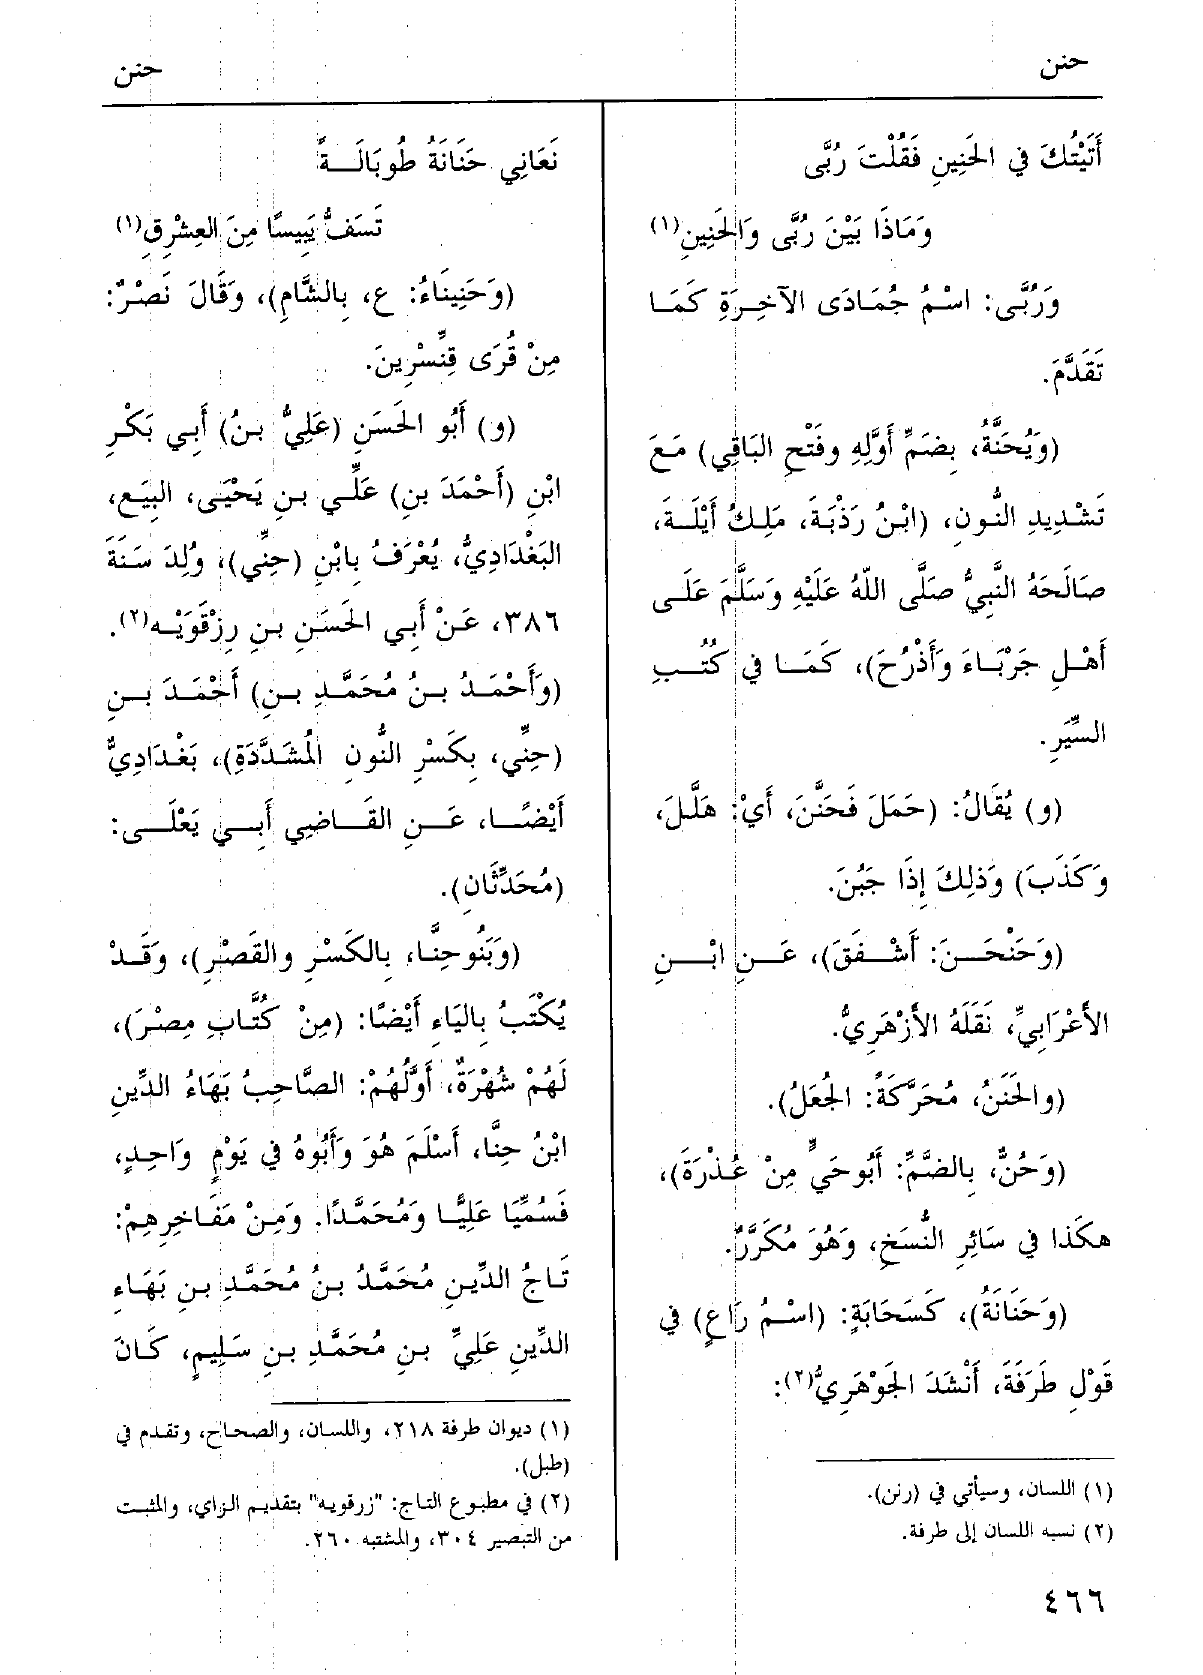 حنن
حنن
أَتَيْتُكَ في الحَنِينِ فَقُلْتَ رُبَّى
وَمَاذَا بَيْنَ رُبَّى وَالحَنِينِ(١)
وَرُبَّى: اسْمُ جُمَادَى الآخِرَةِ كَمَا
تَقَدَّمَ.
(وَيُحَنَّةُ، بِضَمِّ أَوَّلِهِ وفَتْحِ البَاقِي) مَعَ
تَشْدِيدِ النُّونِ، (ابْنُ رَذْبَةَ، مَلِكُ أَيْلَةَ،
صَالَحَهُ النَّبِيُّ صَلَّى اللهُ عَلَيْهِ وَسَلَّمَ عَلَى
أَهْلِ جَرْبَاءَ وَأَذْرُحَ)، كَمَا في كُتُبِ
السِّيَرِ.
(و) يُقَالُ: (حَمَلَ فَحَنَّنَ، أَيْ: هَلَّلَ،
وَكَذَبَ) وَذلِكَ إِذَا جَبُنَ.
(وَحَنْحَنَ: أَشْفَقَ)، عَنِ ابْنِ
الأَعْرَابِيِّ، نَقَلَهُ الأَزْهَرِيُّ.
(والحَنَنُ، مُحَرَّكَةً: الجُعَلُ).
(وَحُنٌّ، بِالضَّمِّ: أَبُوحَيٍّ مِنْ عُذْرَةَ)،
هكَذا في سَائِرِ النُّسَخِ، وَهُوَ مُكَرَّرٌ.
(وَحَنَانَةُ)، كَسَحَابَةٍ: (اسْمُ رَاعٍ) في
قَوْلِ طَرَفَةَ، أَنْشَدَ الجَوْهَرِيُّ(٢):
(١) اللسان، وسيأتي في (رنن).
(٢) نسبه اللسان إلى طرفة.
نَعَانِي حَنَانَةُ طُوبَالَةً
تَسَفُّ يَبِيسًا مِنَ العِشْرِقِ(١)
(وَحَنِينَاءُ: ع، بِالشَّامِ)، وَقَالَ نَصْرٌ:
مِنْ قُرَى قِنِّسْرِينَ.
(و) أَبُو الحَسَنِ (عَلِيُّ بنُ) أَبِي بَكْرِ
ابْنِ (أَحْمَدَ بنِ) عَلِّي بنِ يَحْيَى، البِيَع،
البَغْدَادِيُّ، يُعْرَفُ بِابْنِ (حِنِّي)، وُلِدَ سَنَةَ
٣٨٦، عَنْ أَبِي الحَسَنِ بنِ رِزْقَوَيْه(٢).
(وَأَحْمَدُ بنُ مُحَمَّدِ بنِ) أَحْمَدَ بنِ
(حِنِّي، بِكَسْرِ النُّونِ المُشَدَّدَةِ)، بَغْدَادِيٌّ
أَيْضًا، عَنِ القَاضِي أَبِي يَعْلَى:
(مُحَدِّثَانِ).
(وَبَنُوحِنَّا، بِالكَسْرِ والقَصْرِ)، وَقَدْ
يُكْتَبُ بِاليَاءِ أَيْضًا: (مِنْ كُتَّابِ مِصْرَ)،
لَهُمْ شُهْرَةٌ، أَوَّلُهُمْ: الصَّاحِبُ بَهَاءُ الدِّينِ
ابْنُ حِنَّا، أَسْلَمَ هُوَ وَأَبُوهُ في يَوْمٍ وَاحِدٍ،
فَسُمِّيَا عَلِيًّا وَمُحَمَّدًا. وَمِنْ مَفَاخِرِهِمْ:
تَاجُ الدِّينِ مُحَمَّدُ بنُ مُحَمَّدِ بنِ بَهَاءِ
الدِّينِ عَلِيِّ بنِ مُحَمَّدِ بنِ سَلِيمٍ، كَانَ
(١) ديوان طرفة ٢١٨، واللسان، والصحاح، وتقدم في
(طبل).
(٢) في مطبوع التاج: "زرقويه" بتقديم الزاي، والمثبت
من التبصير ٣٠٤، والمشتبه ٢٦٠.
٤٦٦